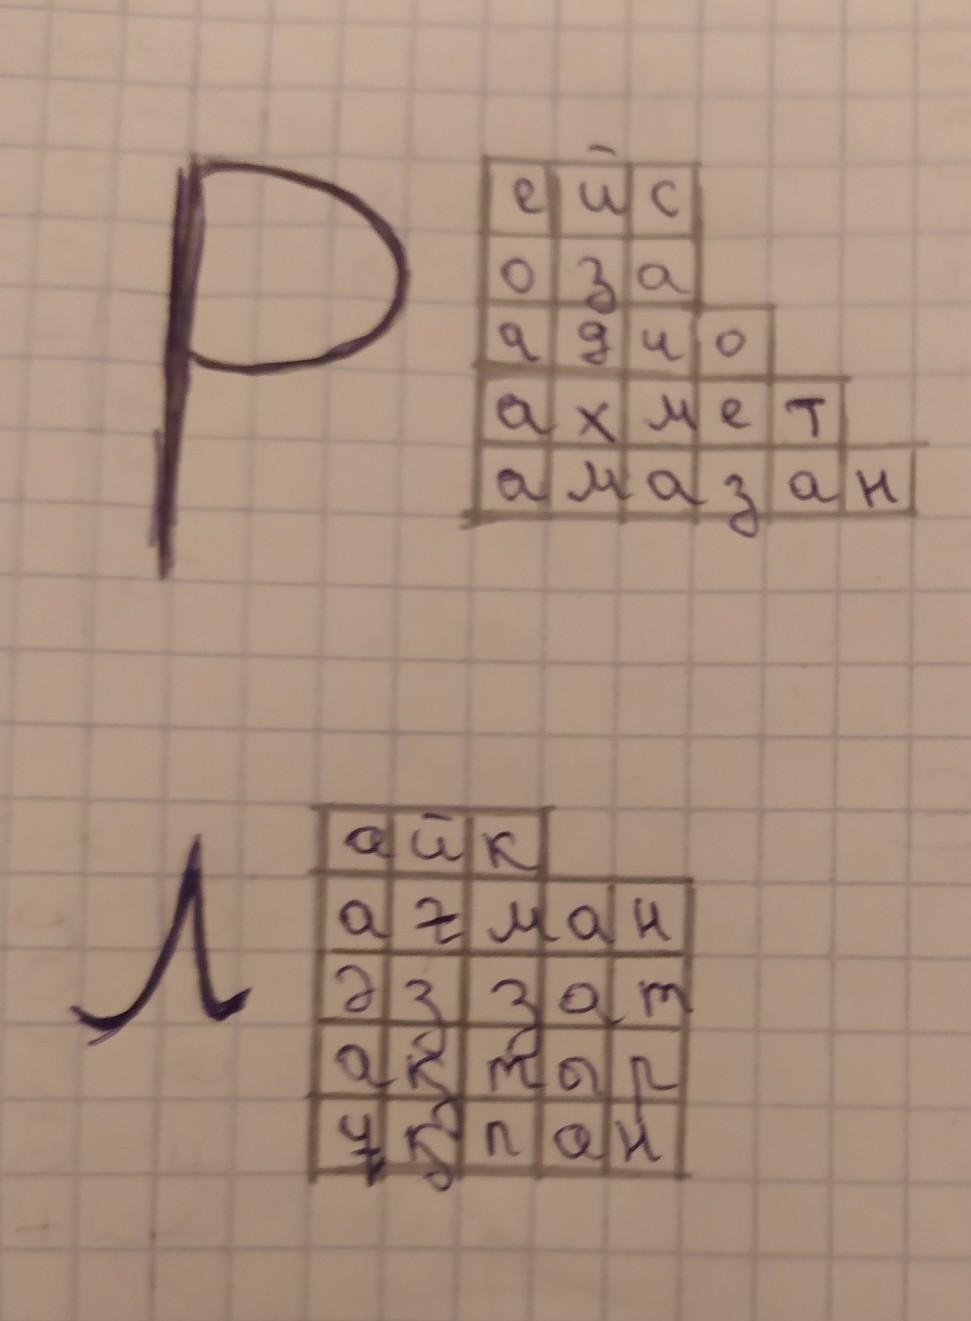 Р
ейс
оза
адио
ахмет
амазан
Л
айк
ағман
әззат
ақтыр
ұқпан